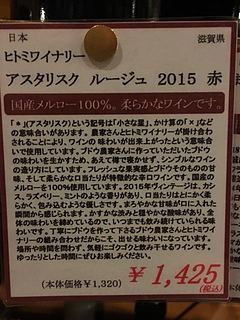 日本 滋賀県
ヒトミワイナリー
アスタリスク ルージュ 2015 赤
国産メルロー100%。柔らかなワインです。
「*」(アスタリスク)という記号は「小さな星」、かけ算の「×」など
の意味合いがあります。農家さんとヒトミワイナリーが掛け合わ
されることにより、ワインの味わいが出来上がったという意味合
いで使用しています。ブドウ農家さんに作っていただいたブドウ
の味わいを生かすため、あえて樽で寝かせず、シンプルなワイン
の造り方にしています。フレッシュな果実感とブドウそのものの甘
味、そして柔らかな口当たりが特徴的な辛口ワインです。国産のメ
ルローを100%使用しています。2015年ヴィンテージは、カシ
ス、ラズベリー、ミントのような香りがあり、口当たりはとにかく柔
らかく、包み込むような優しさです。まろやかな甘味が口に入れた
瞬間から感じられます。わずかな渋みと穏やかな酸味があり、全
体の味わいを締めているので、いつまでも飲み続けていられる味
わいです。丁寧にブドウを作って下さるブドウ農家さんとヒトミワイ
ナリーの組み合わせだからこそ、出せる味わいになっています。
場所や時間を問わず、気軽にゴクゴクと飲み干せるワインです。
ゆったりとした時間にぜひお楽しみください。
¥1,425
(本体価格¥1,320) (税込)